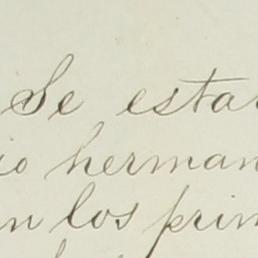 Se esta
io herman
n los prim